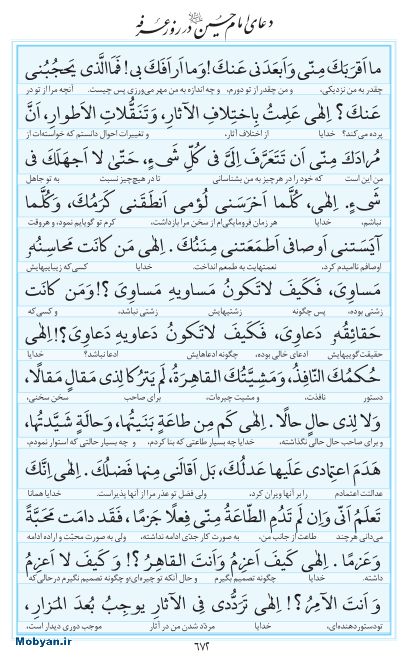 دعای امام حسین در روز عرفه
ما اَقرَبَكَ مِنّى وَ اَبعَدَنى عَنكَ! وَما اَرافَكَ بى! فَمَا الَّذى يَحجُبُنى
چقدر به من نزدیکی، و من چقدر از تو دورم، و چه اندازه به من مهر می‌ورزی پس چیست آنچه مرا از تو در
عَنكَ؟ اِلٰهى عَلِمتُ بِاختِلافِ الآثارِ، وَتَنَقُّلاتِ الاَطوارِ، اَنَّ
پرده می‌کند؟ خدایا از اختلاف آثار، و تغییرات احوال دانستم که خواسته‌ات از
مُرادَكَ مِنّى اَن تَتَعَرَّفَ اِلَىَّ فى كُلِّ شَىءٍ، حَتّىٰ لا اَجهَلَكَ فى
من این است که خود را در هر چیز به من بشناسانی تا در هیچ چیز نسبت به تو جاهل
شَىءٍ. اِلٰهى، كُلَّما اَخرَسَنى لُؤمى اَنطَقَنى كَرَمُكَ، وَكُلَّما
نباشم، خدایا هر زمان فرومایگی‌ام از سخن مرا بازداشت، کرم تو گویایم نمود، و هر وقت
آيَسَتنى اَوصافى اَطمَعَتنى مِنَنُكَ. اِلٰهى مَن كانَت مَحاسِنُهُ
اوصافم ناامیدم کرد، نعمتهایت به طمعم انداخت. خدایا کسی که زیباییهایش
مَساوِىَ، فَكَيفَ لاتَكونُ مَساويهِ مَساوِىَ؟! وَمَن كانَت
زشتی بوده، پس چگونه زشتیهایش زشتی نباشد، و کسی که
حَقائِقُهُ دَعاوِىَ، فَكَيفَ لاتَكونُ دَعاويهِ دَعاوِىَ؟! اِلٰهى
حقیقت‌گوییهایش ادعای خالی بوده، چگونه ادعاهایش ادعا نباشد؟ خدایا
حُكمُكَ النّافِذُ، وَمَشِيَّتُكَ القاهِرَةُ، لَم يَترُكا لِذى مَقالٍ مَقالًا،
دستور نافذت، و مشیت چیره‌ات، برای صاحب سخن سخنی،
وَلا لِذى حالٍ حالًا. اِلٰهى كَم مِن طاعَةٍ بَنَيتُها، وَحالَةٍ شَيَّدتُها،
و برای صاحب حال حالی نگذاشته، خدایا چه بسیار طاعتی که بنا کردم، و چه بسیار حالتی که استوار نمودم،
هَدَمَ اعتِمادى عَلَيها عَدلُكَ، بَل اَقالَنى مِنها فَضلُكَ. اِلٰهى اِنَّكَ
عدالتت اعتمادم را بر آنها ویران کرد، ولی فضل تو عذر مرا از آنها پذیراست. خدایا همانا
تَعلَمُ اَنّى وَاِن لَم تَدُمِ الطّاعَةُ مِنّى فِعلًا جَزمًا، فَقَد دامَت مَحَبَّةً
می‌دانی هرچند طاعت از جانب من، به صورت کار جدّی ادامه نداشته، ولی به صورت محبّت و اراده ادامه
وَعَزمًا. اِلٰهى كَيفَ اَعزِمُ وَاَنتَ القاهِرُ؟! وَ كَيفَ لا اَعزِمُ
داشته. خدایا چگونه تصمیم بگیرم و حال آنکه تو چیره‌ای، و چگونه تصمیم نگیرم در حالی که
وَ اَنتَ الآمِرُ؟! اِلٰهى تَرَدُّدى فِى الآثارِ يوجِبُ بُعدَ المَزارِ،
تو دستور دهنده‌ای، خدایا مردّد شدن من در آثار موجب دوری دیدار است،
۶۷۲
Mobyan.ir